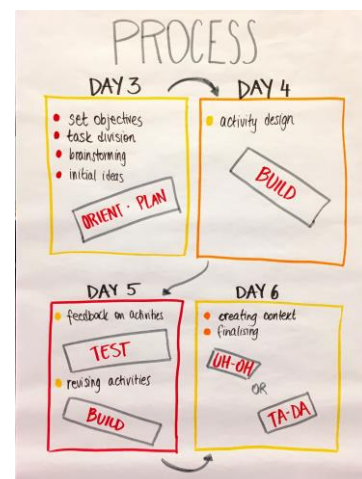 PROCESS
DAY 3
set objectives
task division
brainstorming
initial ideas
ORIENT · PLAN
DAY 4
activity design
BUILD
DAY 5
feedback on activities
TEST
revising activities
BUILD
DAY 6
creating context
finalising
UH-OH
OR
TA-DA